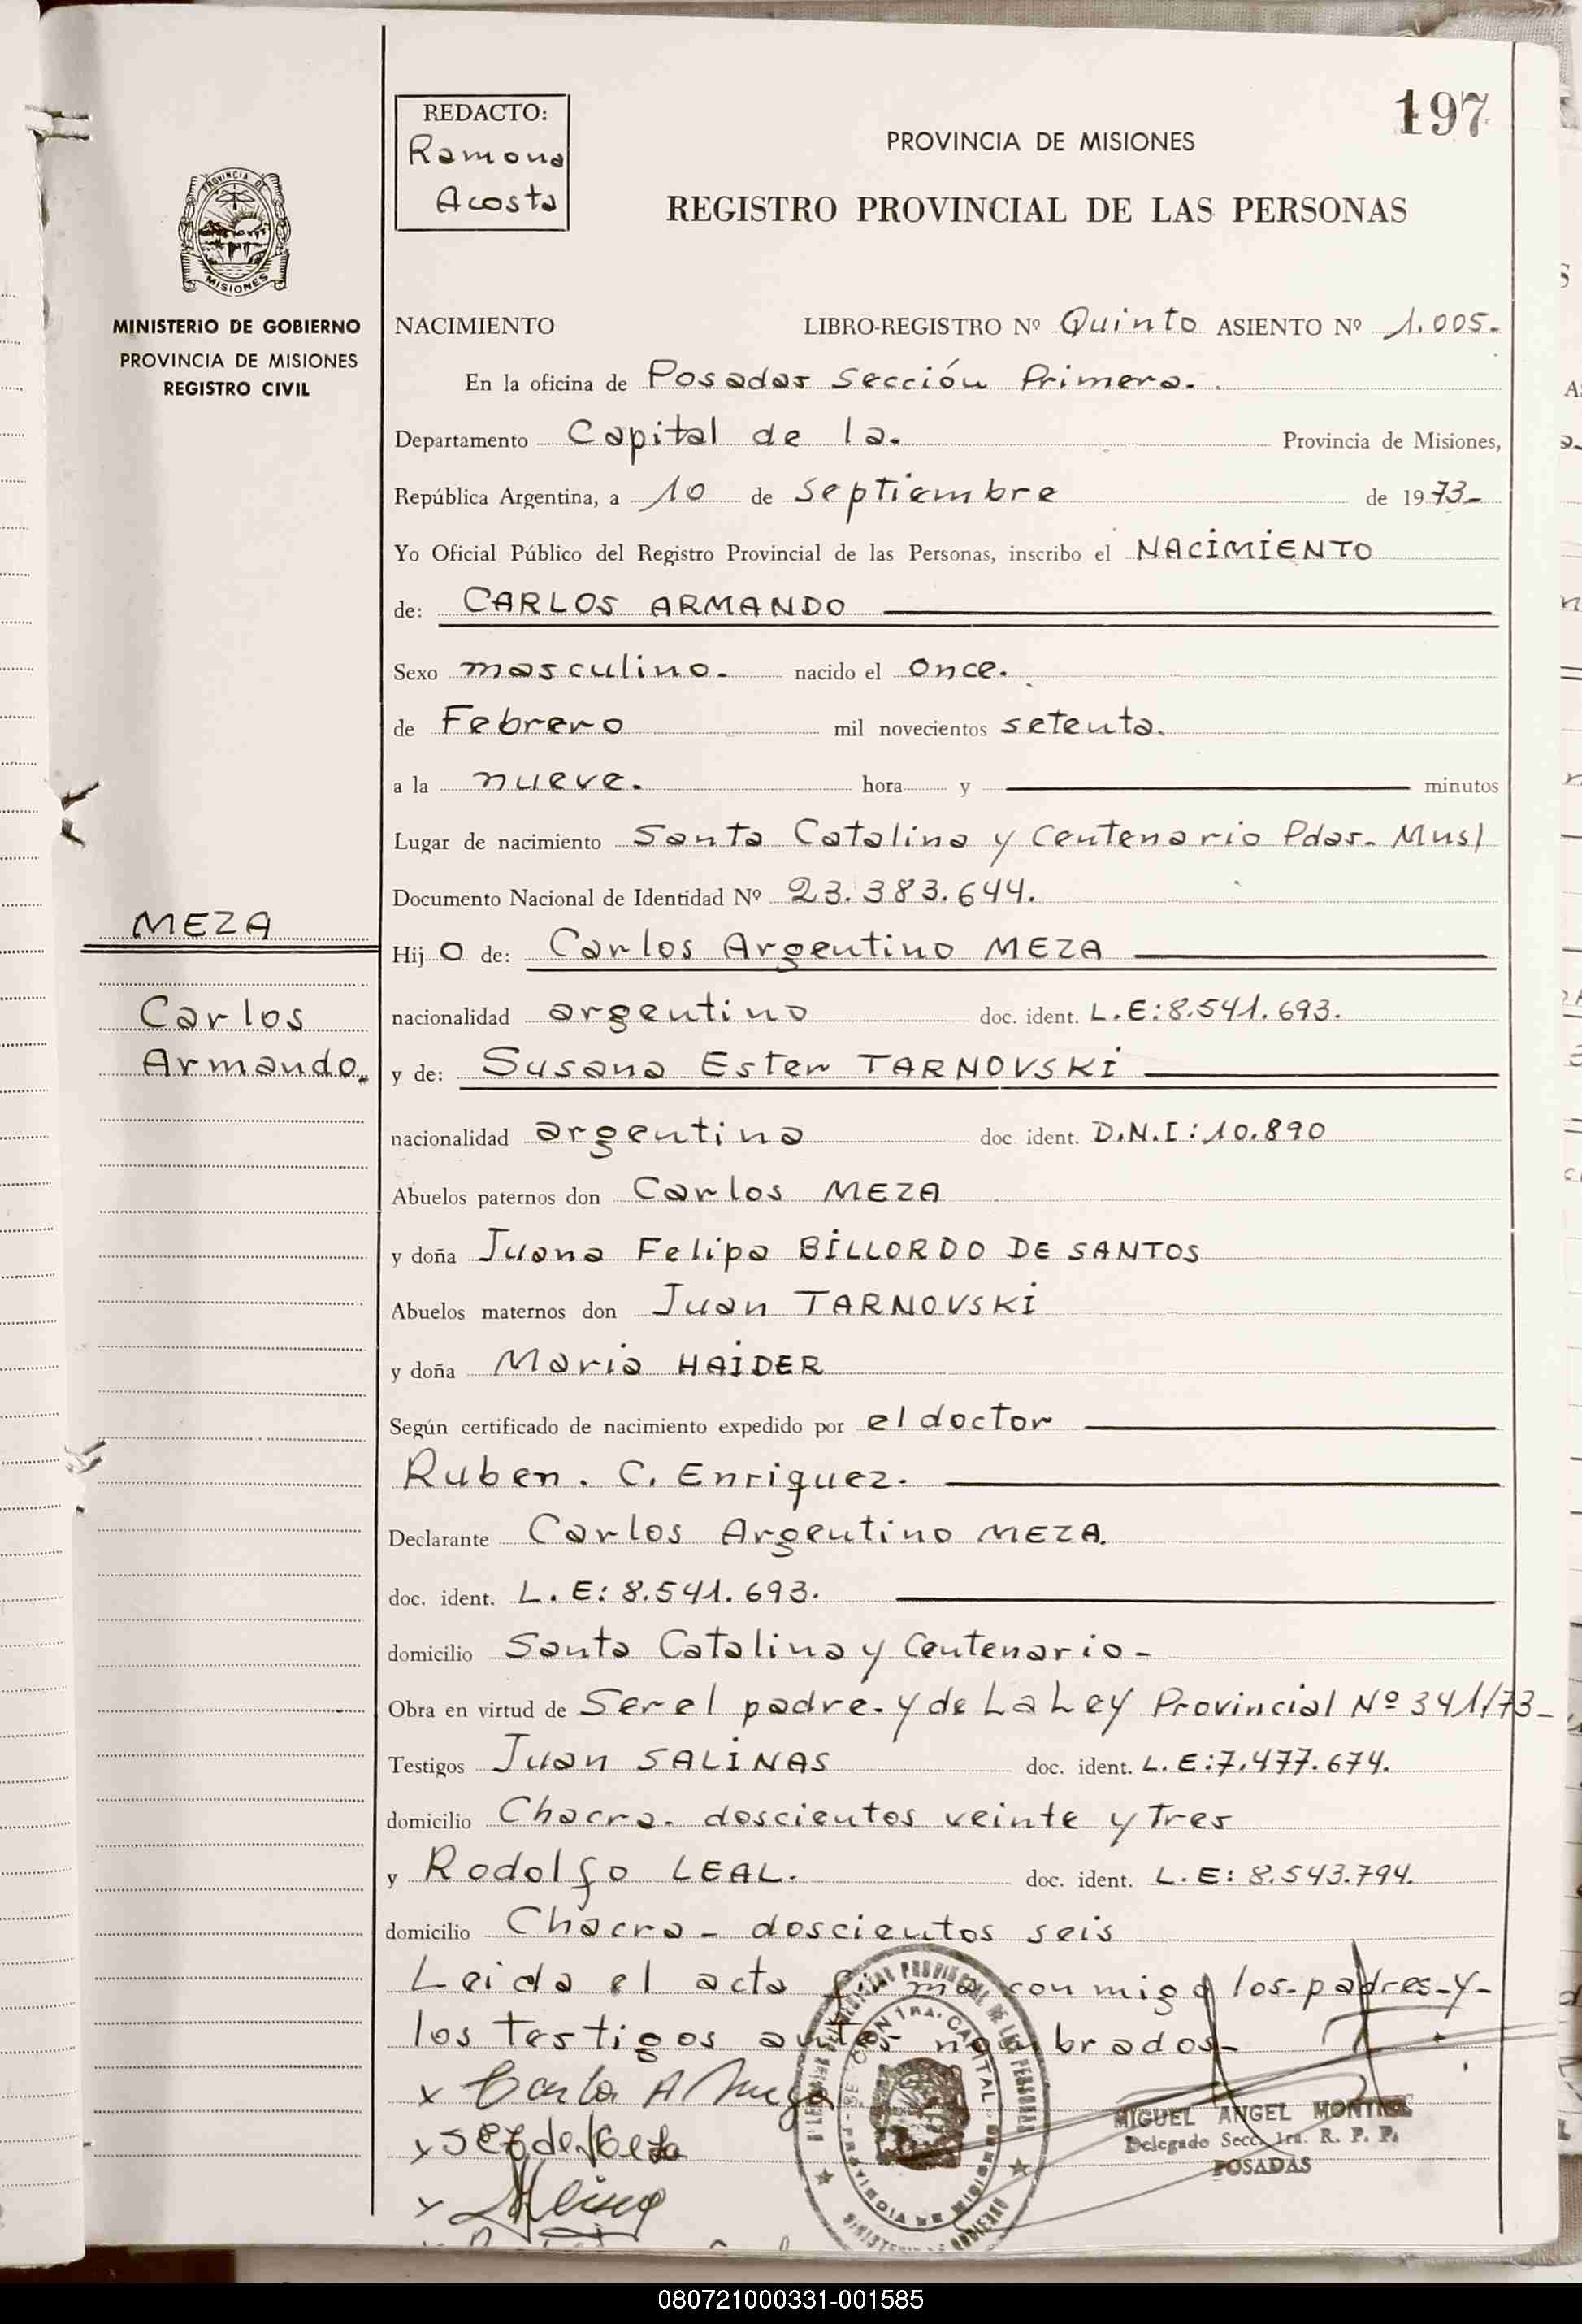 197
REDACTO:
Ramona
Acosta
PROVINCIA DE MISIONES
REGISTRO PROVINCIAL DE LAS PERSONAS
PROVINCIA DE
MISIONES
MINISTERIO DE GOBIERNO
PROVINCIA DE MISIONES
REGISTRO CIVIL
NACIMIENTO LIBRO-REGISTRO Nº Quinto ASIENTO Nº 1.005.
En la oficina de Posadas Sección Primera.
Departamento Capital de la. Provincia de Misiones,
República Argentina, a 10 de Septiembre de 1973-
Yo Oficial Público del Registro Provincial de las Personas, inscribo el NACIMIENTO
de: CARLOS ARMANDO
Sexo masculino. nacido el Once.
de Febrero mil novecientos setenta.
a la nueve. hora y minutos
Lugar de nacimiento Santa Catalina y Centenario Pdas. Mns/
Documento Nacional de Identidad Nº 23.383.644.
MEZA
Carlos
Armando.
Hijo de: Carlos Argentino MEZA
nacionalidad argentino doc. ident. L.E:8.541.693.
y de: Susana Ester TARNOVSKI
nacionalidad argentina doc ident. D.N.I:10.890
Abuelos paternos don Carlos MEZA
y doña Juana Felipa BILLORDO DE SANTOS
Abuelos maternos don Juan TARNOVSKI
y doña Maria HAIDER
Según certificado de nacimiento expedido por el doctor
Ruben. C. Enriquez.
Declarante Carlos Argentino MEZA.
doc. ident. L.E:8.541.693.
domicilio Santa Catalina y Centenario-
Obra en virtud de Ser el padre-y de La Ley Provincial Nº 341/73-
Testigos Juan SALINAS doc. ident. L.E:7.477.674.
domicilio Chacra. doscientos veinte y Tres
y Rodolfo LEAL. doc. ident. L.E: 8.543.794.
domicilio Chacra- doscientos seis
Leida el acta firma conmigo los-padres-y-
los testigos antes nombrados-
x Carlos A Meza
x
x
MIGUEL ANGEL MONTIEL
Delegado Secc. 1ra. R. P. P.
POSADAS
080721000331-001585